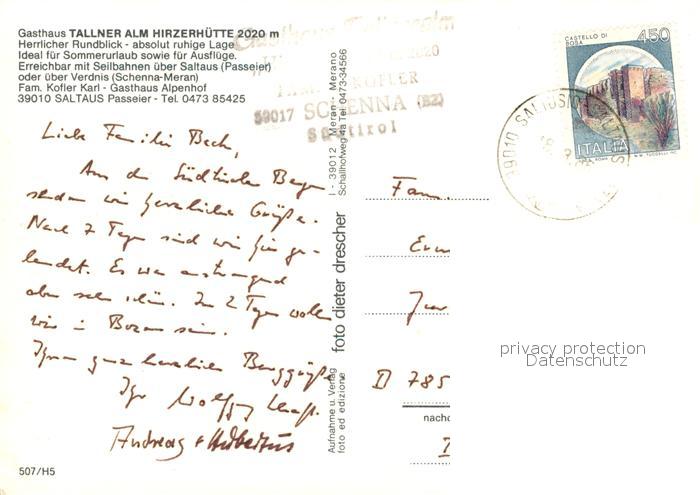 Gasthaus TALLNER ALM HIRZERHÜTTE 2020 m
Herrlicher Rundblick - absolut ruhige Lage
Ideal für Sommerurlaub sowie für Ausflüge.
Erreichbar mit Seilbahnen über Saltaus (Passeier)
oder über Verdnis (Schenna-Meran)
Fam. Kofler Karl - Gasthaus Alpenhof
39010 SALTAUS Passeier - Tel. 0473 85425
2020
KOFLER
39017 SCHENNA (BZ)
Südtirol
CASTELLO DI
BOSA
450
ITALIA
39010
Liebe Familie Bech,
Aus den Südtiroler Bergen
senden wir herzliche Grüße.
Nach 7 Tagen sind wir hier ge-
landet. Es war anstrengend
aber sehr schön. In 2 Tagen wollen
wir in Bozen sein.
Ihnen ganz herzliche Berggrüße
Ihr Wolfgang
Andreas + Hubertus
I - 39012 Meran - Merano
Schallhofweg 4a Tel 0473-34566
foto dieter drescher
Aufnahme u. Verlag
foto ed edizione
Fam.
D 785
nachd
507/H5
privacy protection
Datenschutz